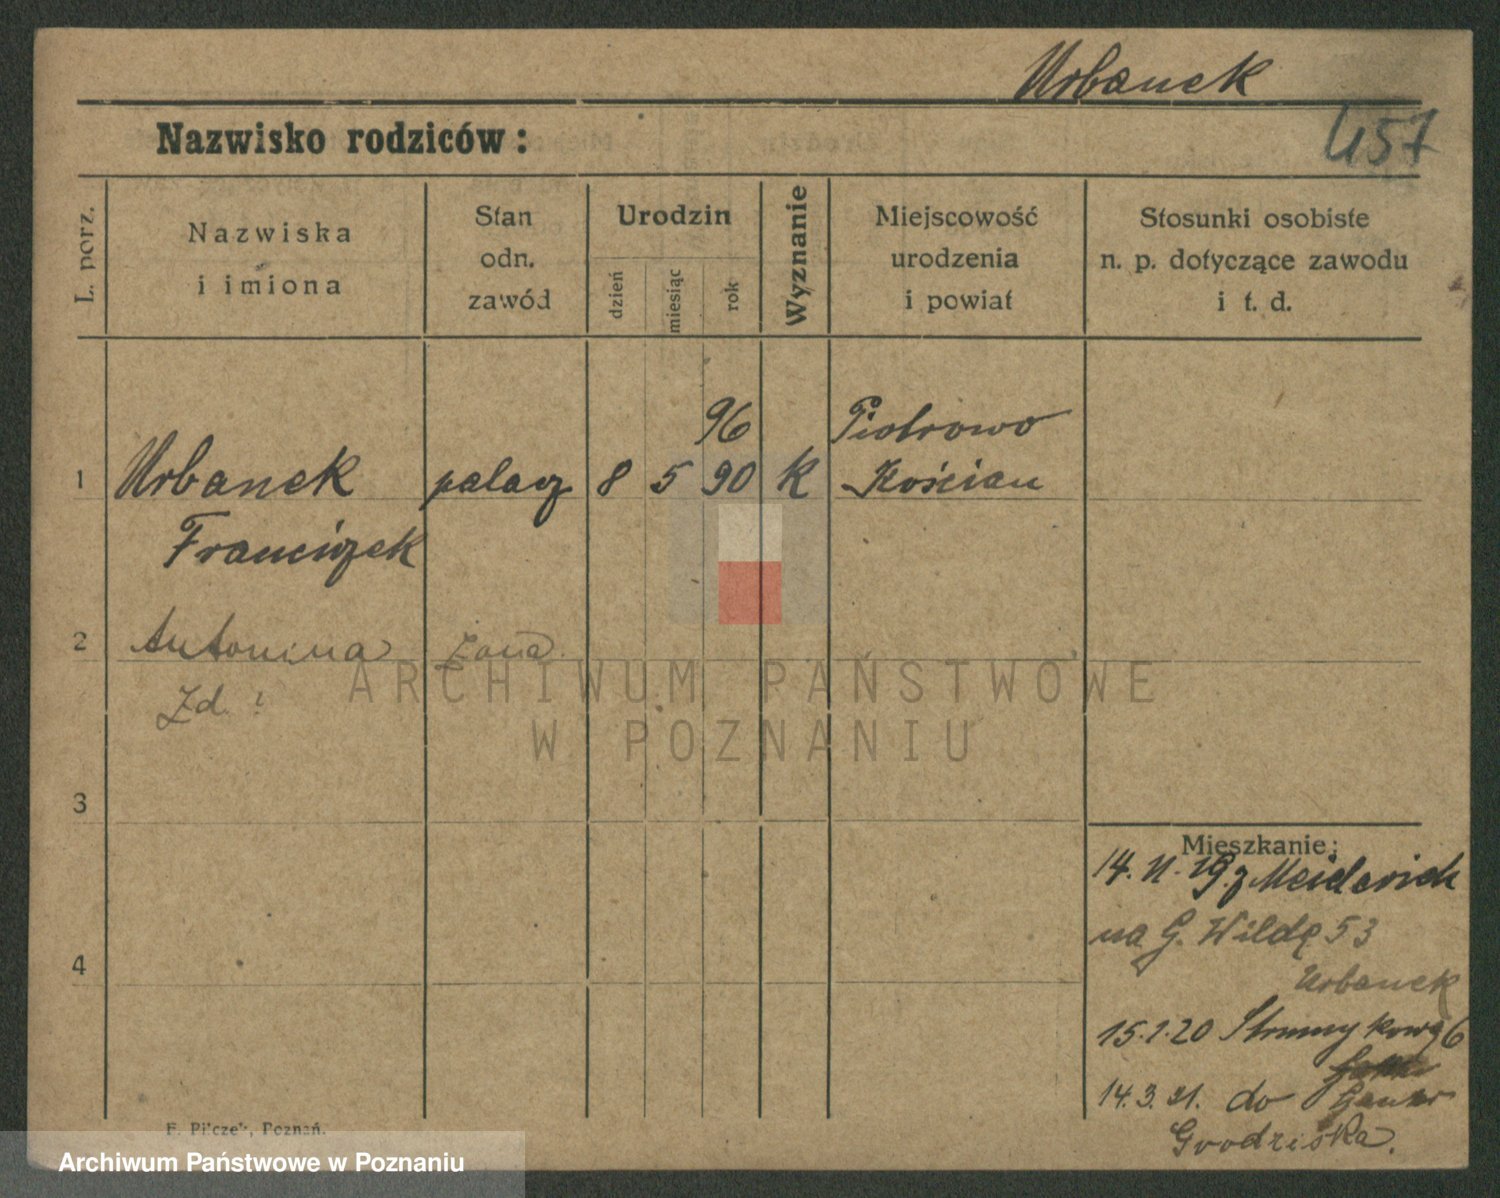 Urbanek
457
Nazwisko rodziców:
L. porz.
Nazwiska
i imiona
Stan
odn.
zawód
Urodzin
dzień
miesiąc
rok
Wyznanie
Miejscowość
urodzenia
i powiat
Stosunki osobiste
n. p. dotyczące zawodu
i t. d.
96
Piotrowo
1 Urbanek palacz 8 5 90 k Kościan
Franciszek
2 Antonina żona
Zd.
ARCHIWUM PAŃSTWOWE
W POZNANIU
3
4
Mieszkanie:
14. 11. 19. z Meiderich
na G. Wildę 53
Urbanek
15.1.20 Strumykową 6
14.3.21. do
Grodziska.
F. Pilczek, Poznań.
Archiwum Państwowe w Poznaniu